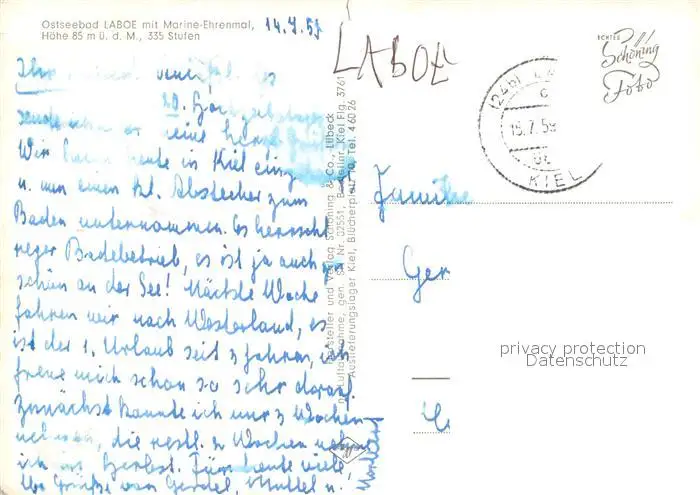 Ostseebad LABOE mit Marine-Ehrenmal,
Höhe 85 m ü. d. M., 335 Stufen
14.7.59
LABOE
ECHTES
Schöning
Foto
(24b)
15.7.59
KIEL
20. Hochzeitstag
senden wir
Wir haben heute in Kiel
u. nun einen kl. Abstecher zum
Baden unternommen. Es herrscht
reger Badebetrieb, es ist ja auch
schön an der See! Nächste Woche
fahren wir nach Westerland, es
ist der 1. Urlaub seit 3 Jahren, ich
freue mich schon so sehr darauf.
Zunächst konnte ich nur 3 Wochen
die restl. 2 Wochen
ich im Herbst. Für heute viele
lb. Grüße von Gerdel, Muttel u.
Hersteller und Verlag Schöning & Co., Lübeck
Luftaufnahme, gen. SH Nr. 02551 · Bestellnr. Kiel Flg. 3761
Auslieferungslager Kiel, Blücherplatz 10, Tel. 4 60 26
Familie
Ger
privacy protection
Datenschutz